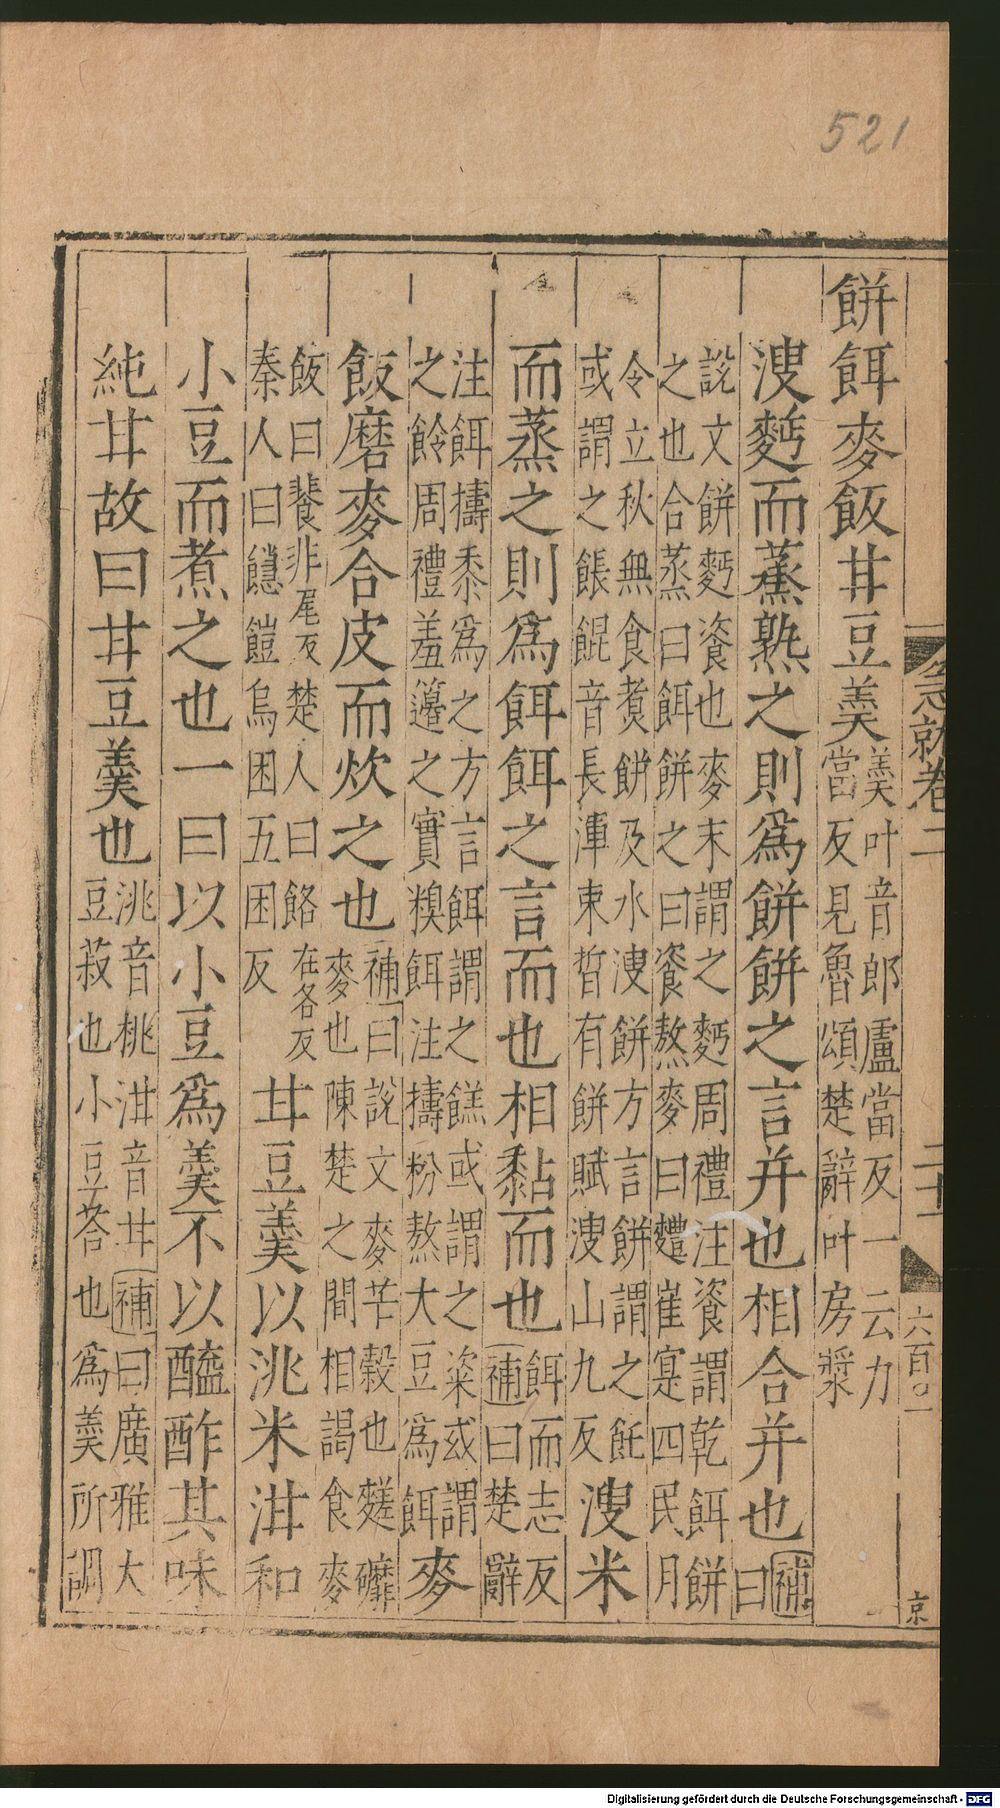 521
急就卷二
二十一
六百〇一
京
餅餌麥飯甘豆羹羹叶音郎盧當反一云力
當反見魯頌楚辭叶房漿
溲麪而蒸熟之則為餅餅之言并也相合并也補曰
說文餅麪餈也麥末謂之麪周禮注餈謂乾餌餅
之也合蒸曰餌餅之曰餈熬麥曰麷崔寔四民月
令立秋無食煑餅及水溲餅方言餅謂之飥
或謂之餦餛音長渾束晳有餅賦溲山九反溲米
而蒸之則為餌餌之言而也相黏而也餌而志反
補曰楚辭
注餌擣黍為之方言餌謂之餻或謂之粢或謂
之䬾周禮羞籩之實糗餌注擣粉熬大豆為餌麥
飯磨麥合皮而炊之也補曰說文麥苦穀也䴾䃺
麥也陳楚之間相謁食麥
飯曰餥非尾反楚人曰飵在各反
秦人曰䭡䭓烏困五困反甘豆羹以洮米泔和
小豆而煮之也一曰以小豆為羹不以醯酢其味
純甘故曰甘豆羹也洮音桃泔音甘補曰廣雅大
豆菽也小豆荅也為羹所調
Digitalisierung gefördert durch die Deutsche Forschungsgemeinschaft - DFG